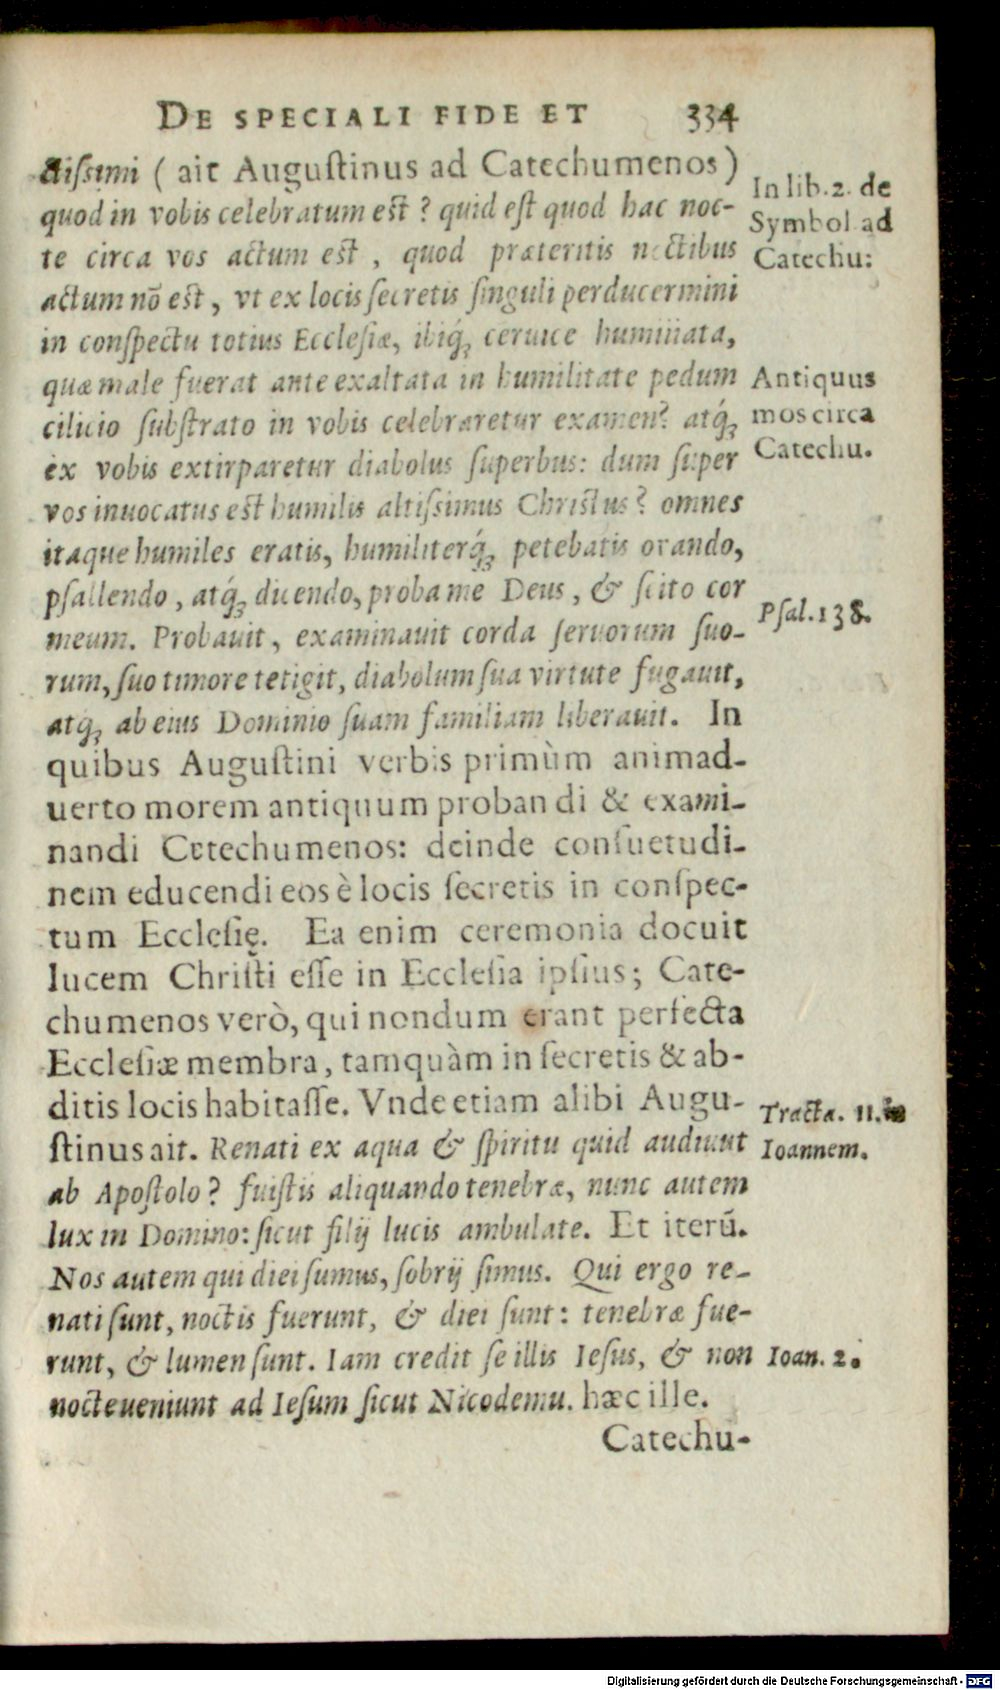 DE SPECIALI FIDE ET 334
ctiſsimi ( ait Auguſtinus ad Catechumenos )
quod in vobis celebratum eſt ? quid eſt quod hac noc-
te circa vos actum eſt , quod præteritis noctibus
actum nõ eſt , vt ex locis ſecretis ſinguli perducermini
in conſpectu totius Eccleſiæ, ibiq́ꝫ ceruice humiliata,
quæ male fuerat ante exaltata in humilitate pedum
cilicio ſubſtrato in vobis celebraretur examen? atq́ꝫ
ex vobis extirparetur diabolus ſuperbus: dum ſuper
vos inuocatus eſt humilis altiſsimus Chriſtus ? omnes
itaque humiles eratis, humiliterq́ꝫ petebatis orando,
pſallendo , atq́ꝫ dicendo, proba me Deus , & ſcito cor
meum. Probauit , examinauit corda ſeruorum ſuo-
rum, ſuo timore tetigit, diabolum ſua virtute fugauit,
atq́ꝫ ab eius Dominio ſuam familiam liberauit. In
quibus Auguſtini verbis primùm animad-
uerto morem antiquum probandi & exami-
nandi Cetechumenos: deinde conſuetudi-
nem educendi eos è locis ſecretis in conſpec-
tum Eccleſię. Ea enim ceremonia docuit
lucem Chriſti eſſe in Eccleſia ipſius; Cate-
chumenos verò, qui nondum erant perfecta
Eccleſiæ membra, tamquàm in ſecretis & ab-
ditis locis habitaſſe. Vnde etiam alibi Augu-
ſtinus ait. Renati ex aqua & ſpiritu quid audiunt
ab Apoſtolo ? fuiſtis aliquando tenebræ, nunc autem
lux in Domino: ſicut filij lucis ambulate. Et iterũ.
Nos autem qui diei ſumus, ſobrij ſimus. Qui ergo re-
nati ſunt, noctis fuerunt, & diei ſunt : tenebræ fue-
runt, & lumen ſunt. Iam credit ſe illis Ieſus, & non
nocte veniunt ad Ieſum ſicut Nicodemu. hæc ille.
Catechu-
In lib. 2. de
Symbol ad
Catechu:
Antiquus
mos circa
Catechu.
Pſal. 138.
Tracta. 11. in
Ioannem.
Ioan. 2.
Digitalisierung gefördert durch die Deutsche Forschungsgemeinschaft - DFG